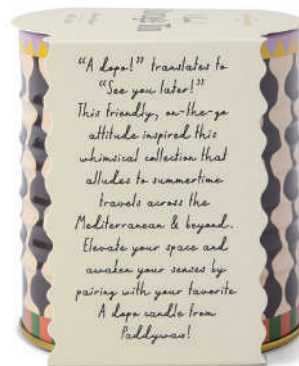 "A dopo!" translates to
"See you later!"
This friendly, on-the-go
attitude inspired this
whimsical collection that
alludes to summertime
travels across the
Mediterranean & beyond.
Elevate your space and
awaken your senses by
pairing with your favorite
A dopo candle from
Paddywax!